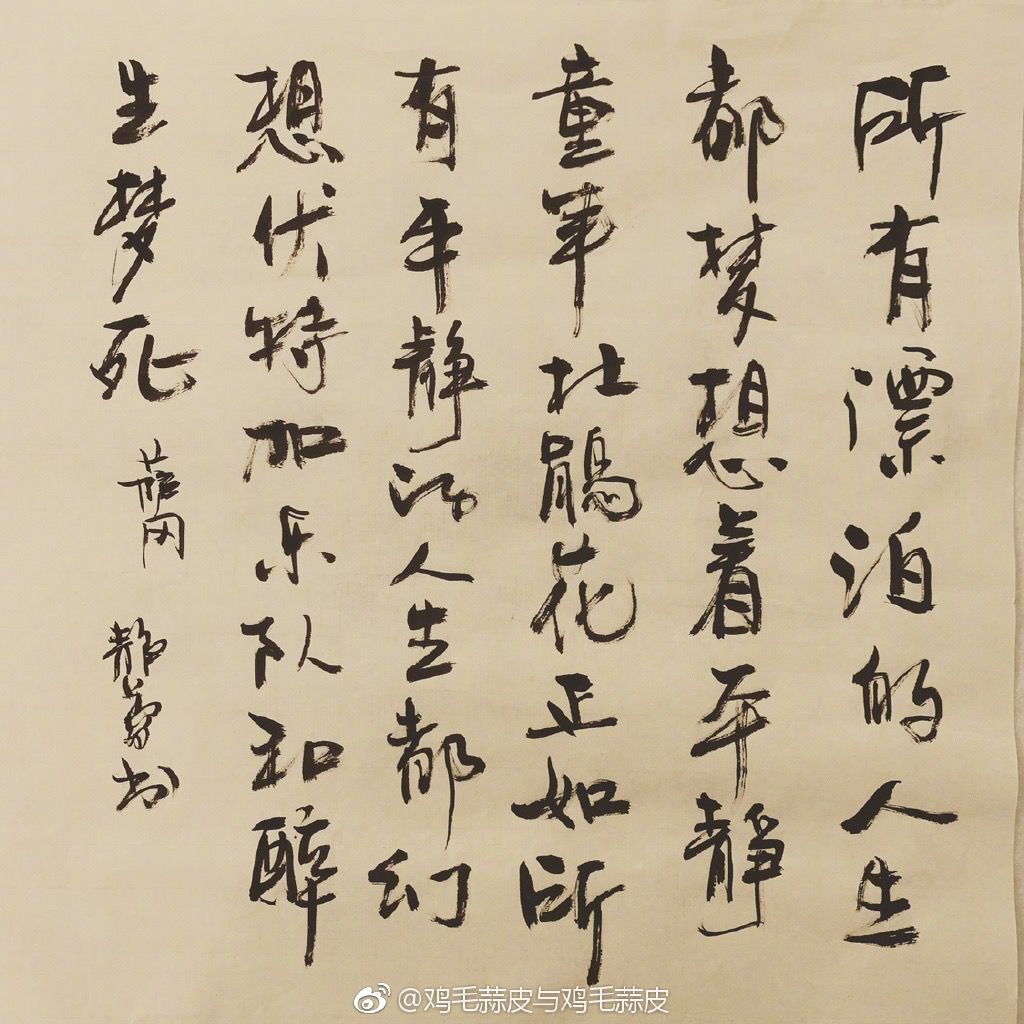 所有漂泊的人生
都梦想着平静
童年杜鹃花正如所
有平静的人生都幻
想伏特加乐队和醉
生梦死 萨冈 书
@鸡毛蒜皮与鸡毛蒜皮